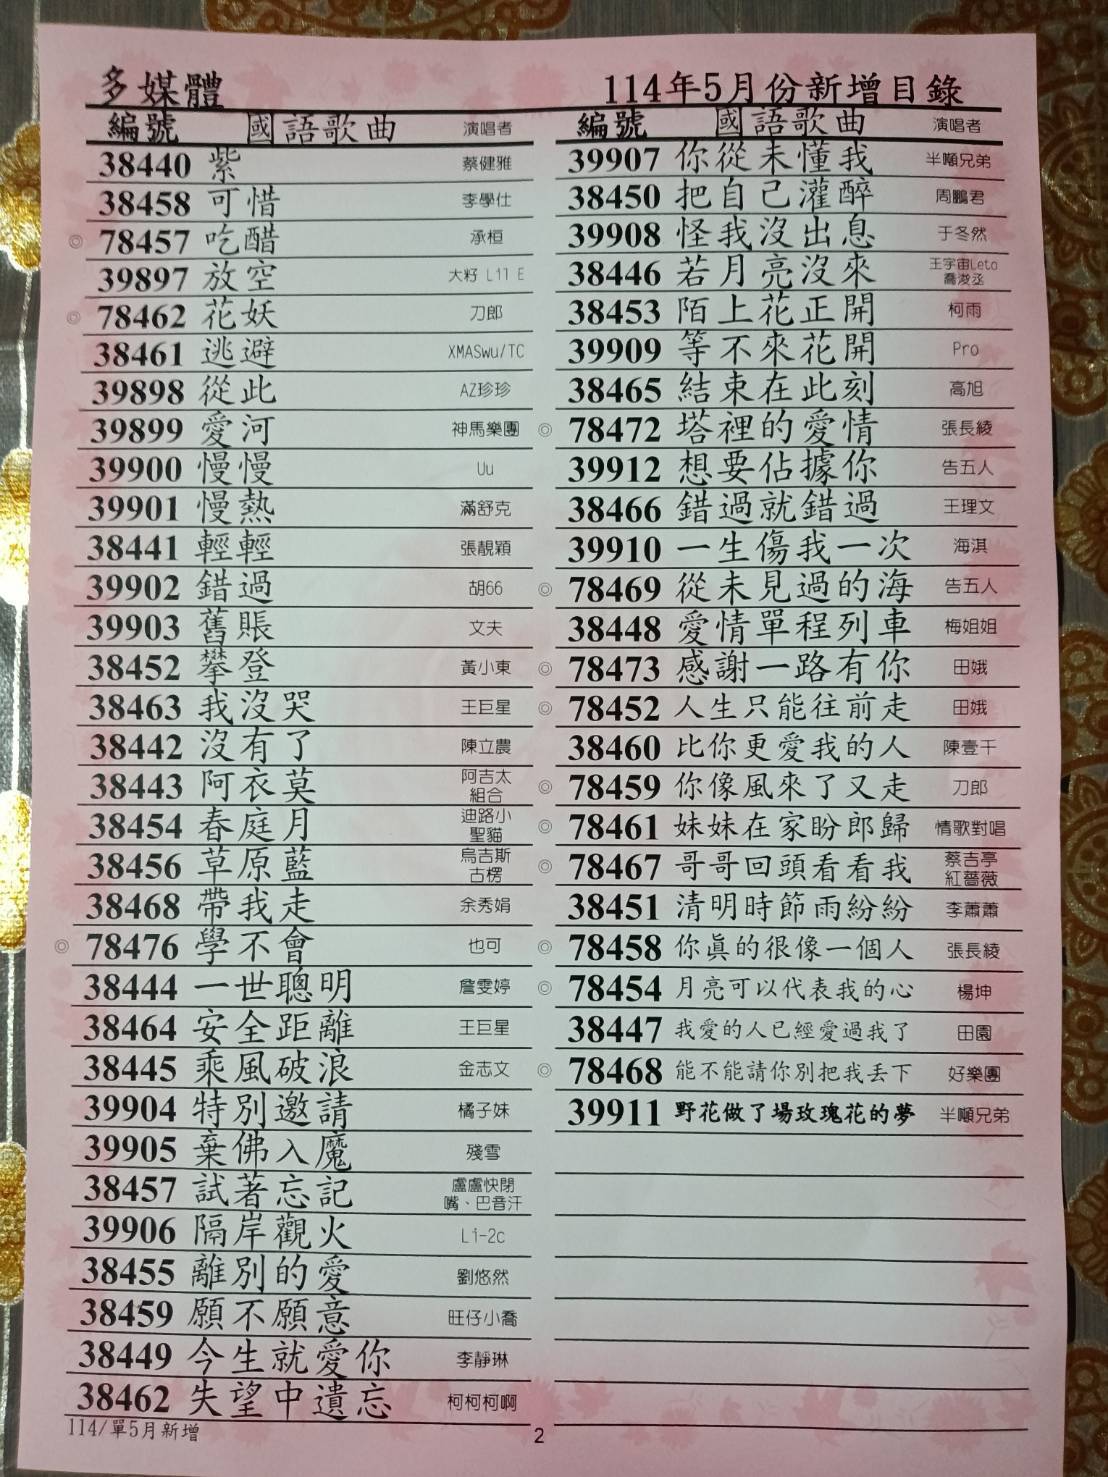 多媒體 114年5月份新增目錄
編號 國語歌曲 演唱者
38440 紫 蔡健雅
38458 可惜 李學仕
◎ 78457 吃醋 承桓
39897 放空 大籽 Lil E
◎ 78462 花妖 刀郎
38461 逃避 XMASwu/TC
39898 從此 AZ珍珍
39899 愛河 神馬樂團
39900 慢慢 Uu
39901 慢熱 滿舒克
38441 輕輕 張靚穎
39902 錯過 胡66
39903 舊賬 文夫
38452 攀登 黃小東
38463 我沒哭 王巨星
38442 沒有了 陳立農
38443 阿衣莫 阿吉太組合
38454 春庭月 迪路小聖貓
38456 草原藍 烏吉斯古楞
38468 帶我走 余秀娟
◎ 78476 學不會 也可
38444 一世聰明 詹雯婷
38464 安全距離 王巨星
38445 乘風破浪 金志文
39904 特別邀請 橘子妹
39905 棄佛入魔 殘雪
38457 試著忘記 盧盧快閉嘴、巴音汗
39906 隔岸觀火 Li-2c
38455 離別的愛 劉悠然
38459 願不願意 旺仔小喬
38449 今生就愛你 李靜琳
38462 失望中遺忘 柯柯柯啊
編號 國語歌曲 演唱者
39907 你從未懂我 半噸兄弟
38450 把自己灌醉 周鵬君
39908 怪我沒出息 于冬然
38446 若月亮沒來 王宇宙Leto喬浚丞
38453 陌上花正開 柯雨
39909 等不來花開 Pro
38465 結束在此刻 高旭
◎ 78472 塔裡的愛情 張長綾
39912 想要佔據你 告五人
38466 錯過就錯過 王理文
39910 一生傷我一次 海淇
◎ 78469 從未見過的海 告五人
38448 愛情單程列車 梅姐姐
◎ 78473 感謝一路有你 田娥
◎ 78452 人生只能往前走 田娥
38460 比你更愛我的人 陳壹千
◎ 78459 你像風來了又走 刀郎
◎ 78461 妹妹在家盼郎歸 情歌對唱
◎ 78467 哥哥回頭看看我 蔡吉亭紅薔薇
38451 清明時節雨紛紛 李蕭蕭
◎ 78458 你真的很像一個人 張長綾
◎ 78454 月亮可以代表我的心 楊坤
38447 我愛的人已經愛過我了 田園
◎ 78468 能不能請你別把我丟下 好樂團
39911 野花做了場玫瑰花的夢 半噸兄弟
114/單5月新增
2